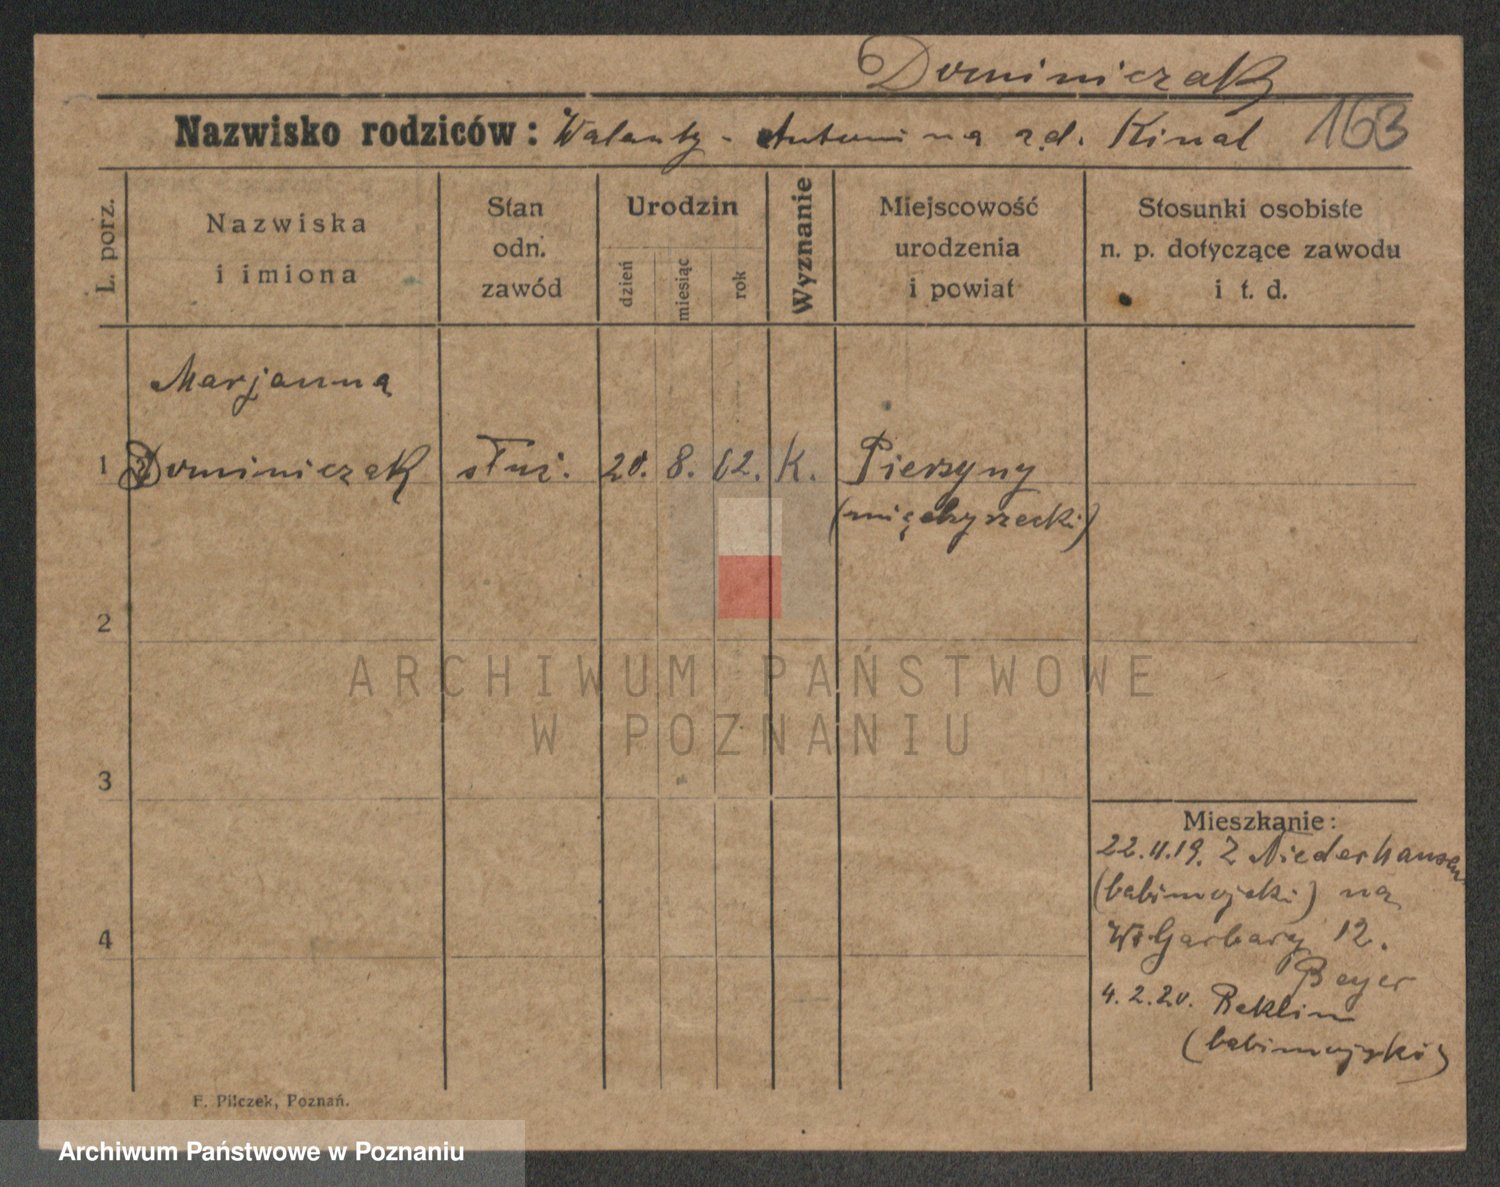 Dominiczak
Nazwisko rodziców: Walenty - Antonina z d. Kinal 163
L. porz.
Nazwiska
i imiona
Stan
odn.
zawód
Urodzin
dzień
miesiąc
rok
Wyznanie
Miejscowość
urodzenia
i powiat
Stosunki osobiste
n. p. dotyczące zawodu
i t. d.
Marjanna
1 Dominiczak służ. 20. 8. 02. K. Pierzyny
(międzyrzecki)
2
3
4
Mieszkanie:
22.11.19. Z Niederhausen
(babimojski) na
W. Garbary 12.
Beyer
4.2.20. Reklin
(babimojski)
F. Pilczek, Poznań.
ARCHIWUM PAŃSTWOWE
W POZNANIU
Archiwum Państwowe w Poznaniu